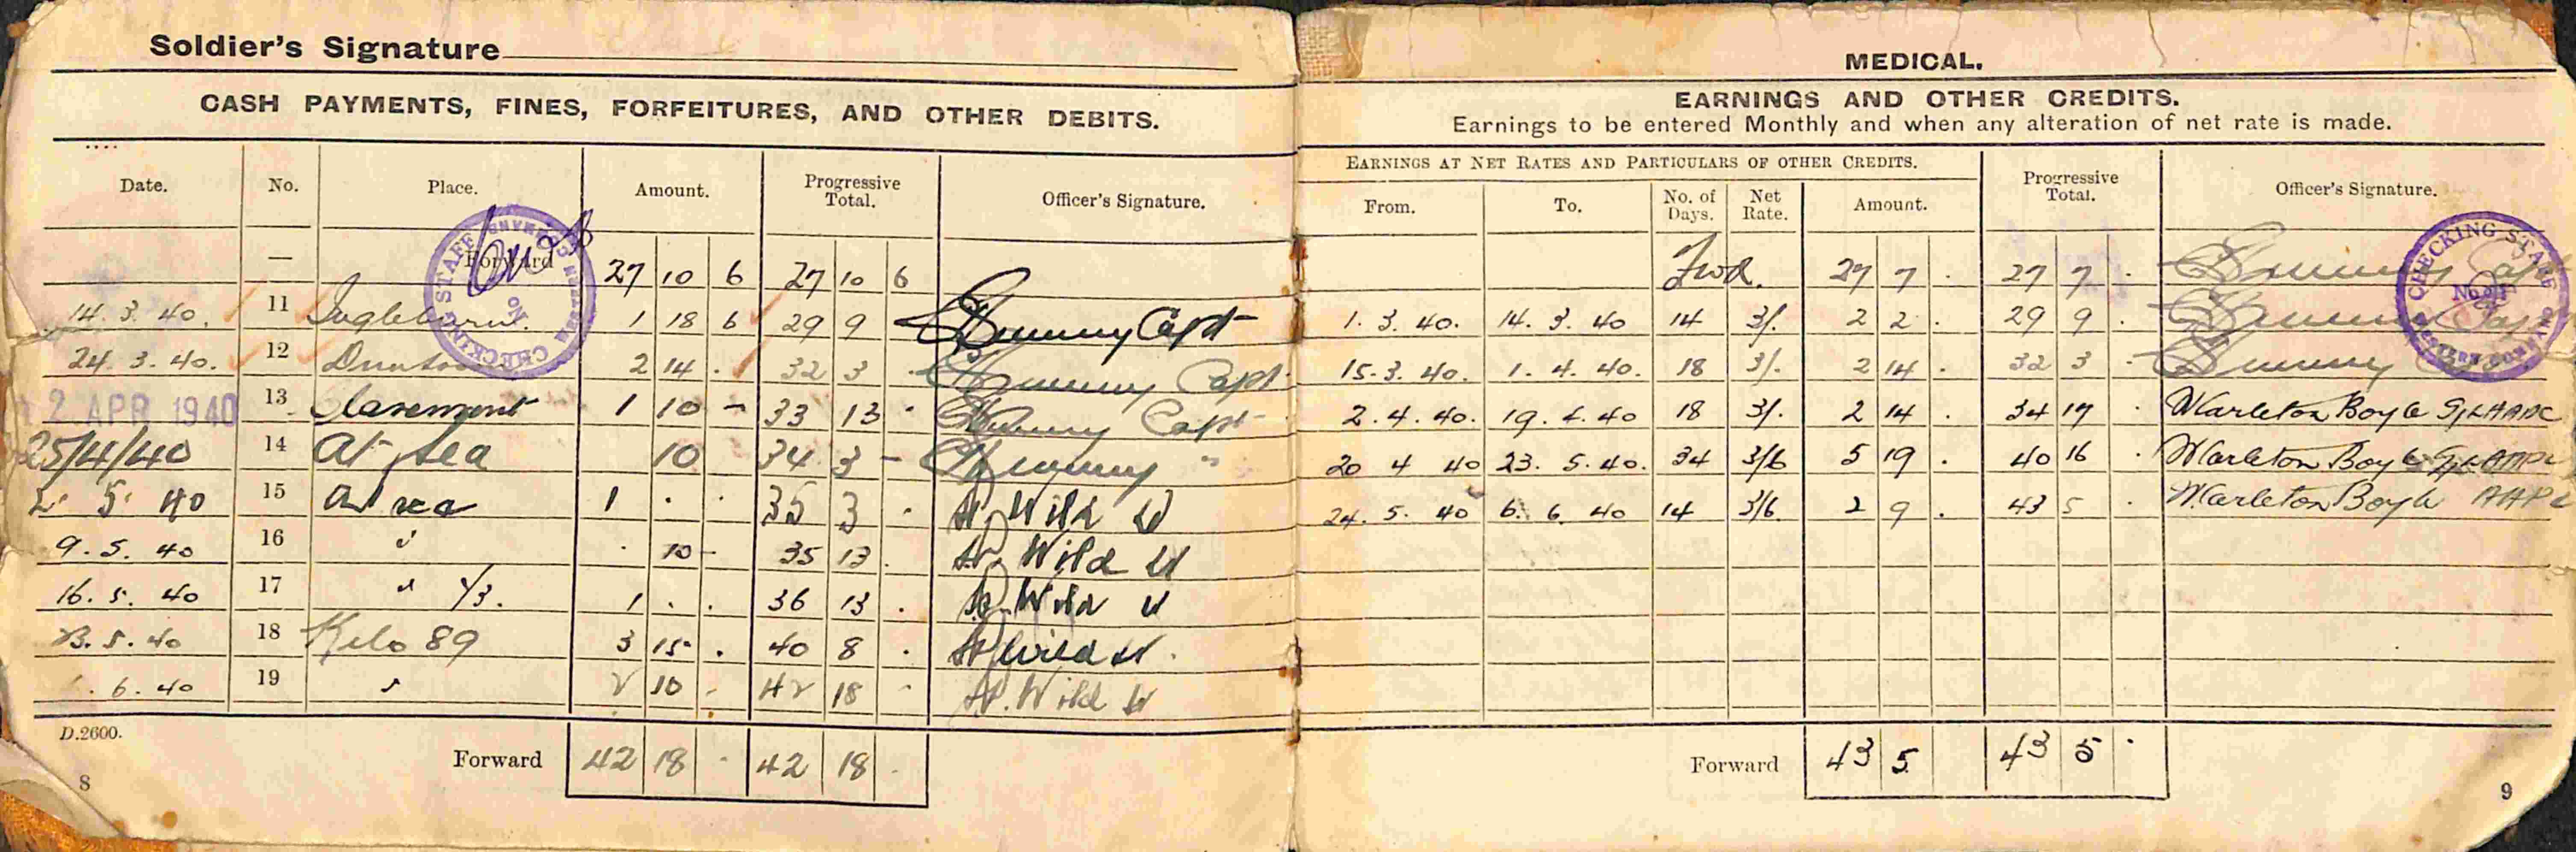 Soldier's Signature
CASH PAYMENTS, FINES, FORFEITURES, AND OTHER DEBITS.
Date. No. Place. Amount. Progressive Total. Officer's Signature.
— Forward 27 10 6 27 10 6
14. 3. 40. 11 Ingleburn. 1 18 6 29 9 Capt
24. 3. 40. 12 2 14 . 32 3 . Capt
2 APR 1940 13 Claremont 1 10 - 33 13 . Capt
25/4/40 14 At Sea 10 34 3 - "
2. 5. 40 15 At sea 1 . . 35 3 . Wild Lt
9. 5. 40 16 " . 10 - 35 13 . Wild Lt
16. 5. 40 17 " 1 . . 36 13 . Wild Lt
23. 5. 40 18 Kilo 89 3 15 . 40 8 . Wild Lt.
. 6. 40 19 " 2 10 . 42 18 . Wild Lt
D.2600.
Forward 42 18 . 42 18 .
8
CHECKING STAFF EASTERN COMMAND No
MEDICAL.
EARNINGS AND OTHER CREDITS.
Earnings to be entered Monthly and when any alteration of net rate is made.
EARNINGS AT NET RATES AND PARTICULARS OF OTHER CREDITS.
From. To. No. of Days. Net Rate. Amount. Progressive Total. Officer's Signature.
Fwd. 27 7 . 27 7 . Capt
1. 3. 40. 14. 3. 40 14 3/. 2 2 . 29 9 .
15. 3. 40. 1. 4. 40. 18 3/. 2 14 . 32 3 .
2. 4. 40. 19. 4. 40 18 3/. 2 14 . 34 17 . Carleton Boyle
20 4 40 23. 5. 40. 34 3/6 5 19 . 40 16 . Carleton Boyle
24. 5. 40 6. 6. 40 14 3/6 2 9 . 43 5 . Carleton Boyle
Forward 43 5 43 5 .
9
CHECKING STAFF EASTERN COMMAND